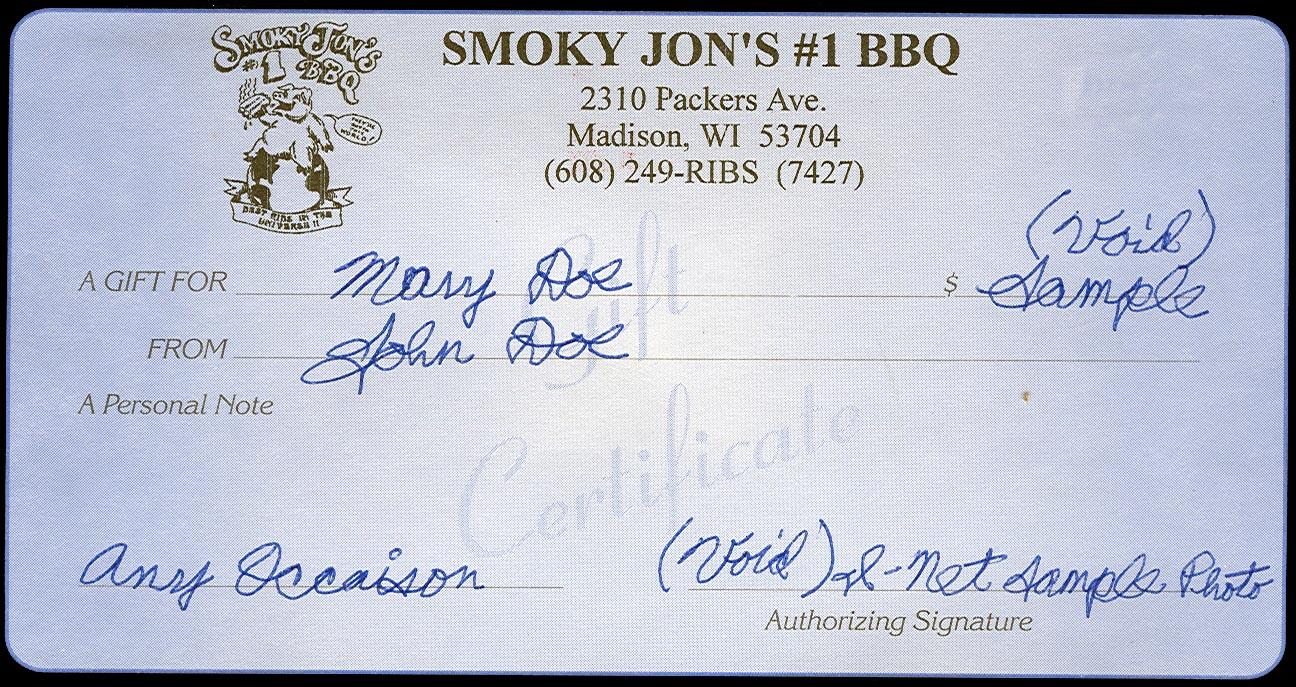 SMOKY JON'S
#1 BBQ
THEY'RE OUTTA THIS WORLD!
BEST RIBS IN THE
UNIVERSE !!
SMOKY JON'S #1 BBQ
2310 Packers Ave.
Madison, WI 53704
(608) 249-RIBS (7427)
Gift
Certificate
(Void)
A GIFT FOR Mary Doe $ Sample
FROM John Doe
A Personal Note
Any Occaison (Void) I-Net Sample Photo
Authorizing Signature